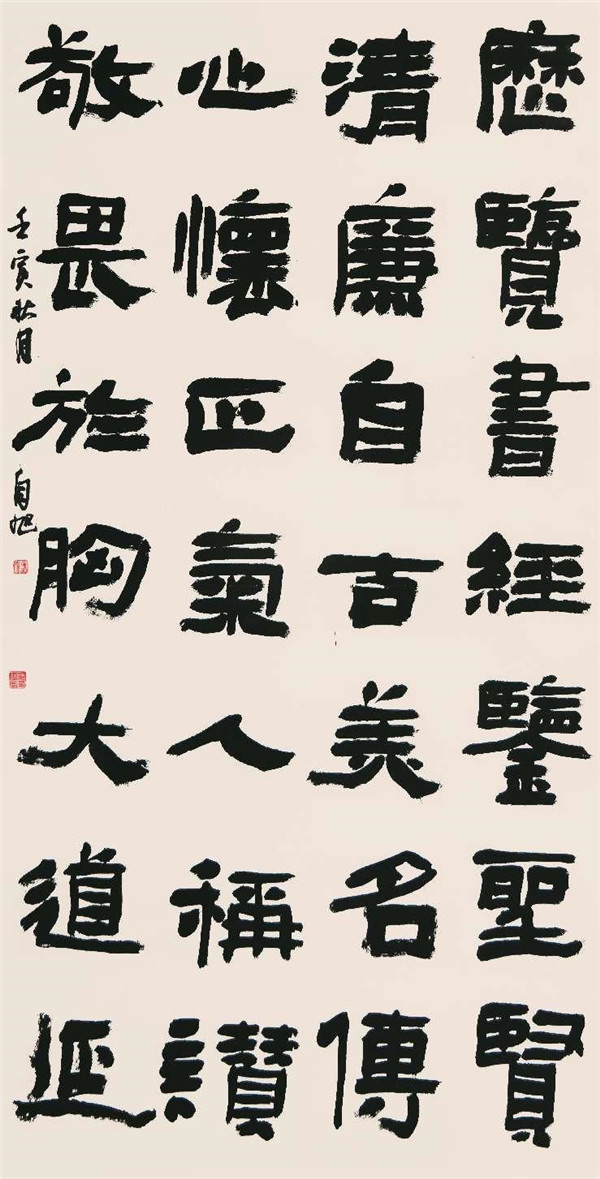 歷覽書經鑒聖賢
清廉自古美名傳
心懷正氣人稱讚
敬畏於胸大道延
壬寅秋月 自旭